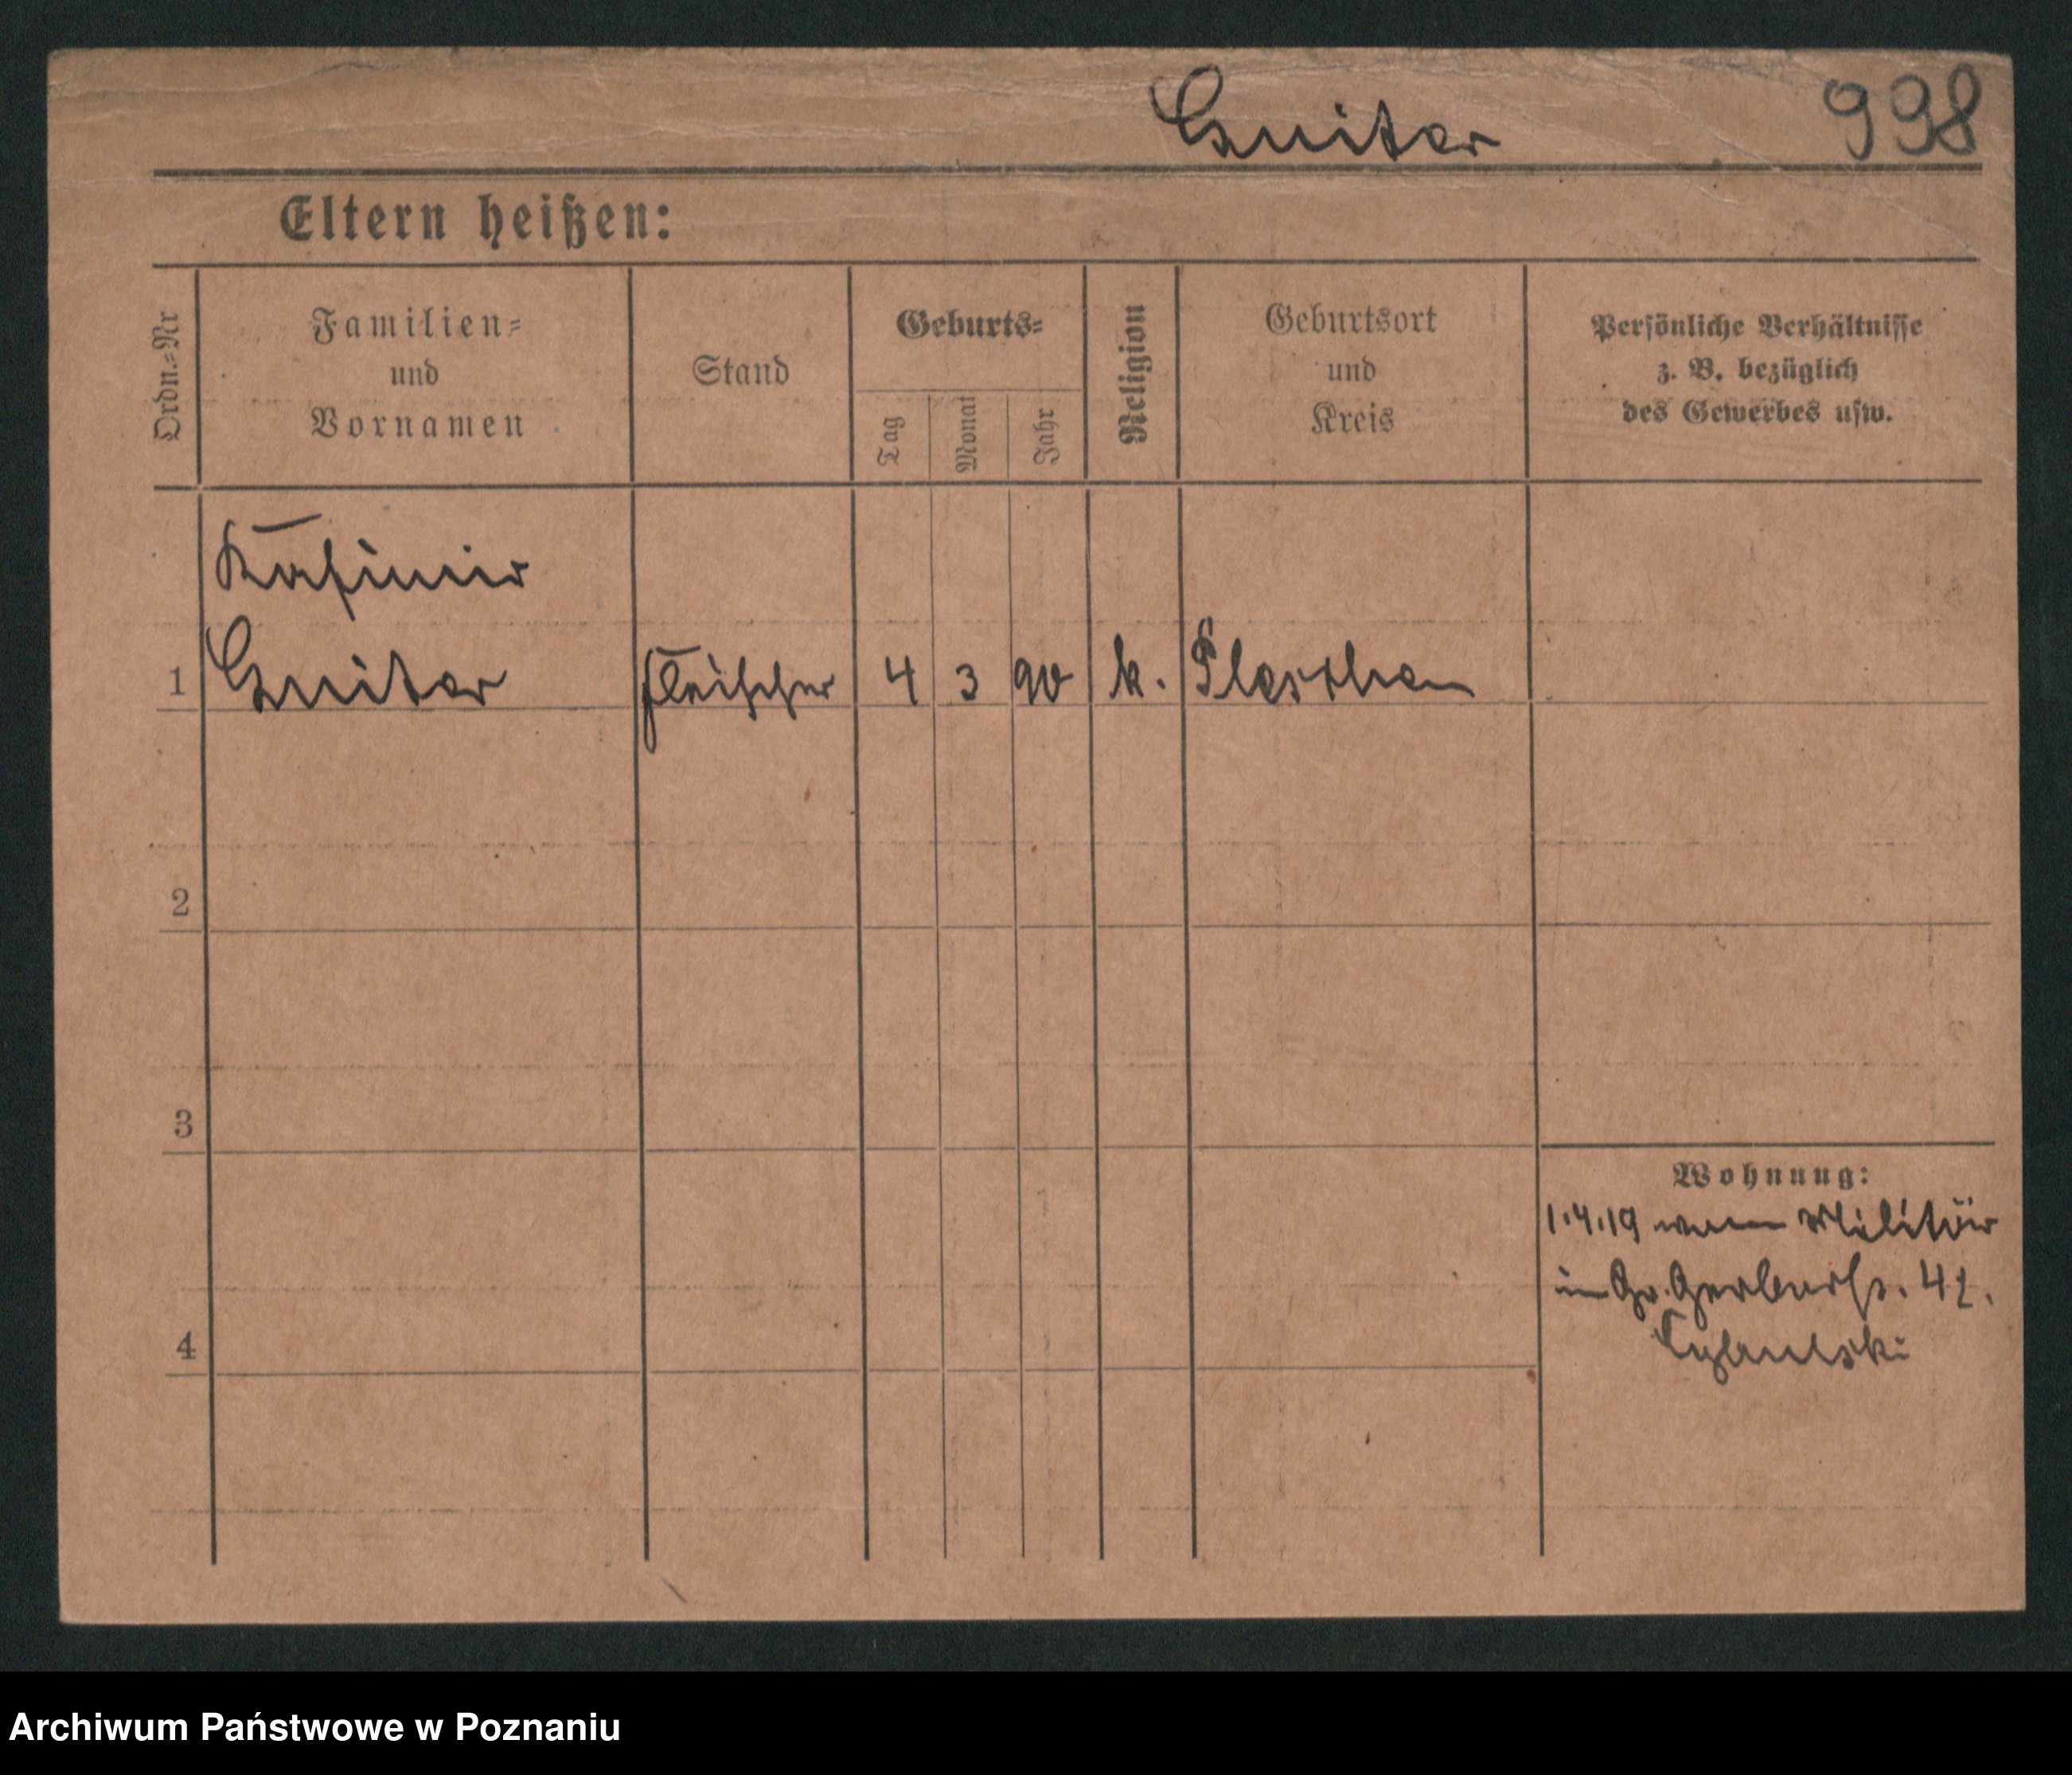 Gniter 998
Eltern heißen:
Ordn.=Nr
Familien=
und
Vornamen
Stand
Geburts=
Tag
Monat
Jahr
Religion
Geburtsort
und
Kreis
Persönliche Verhältnisse
z. B. bezüglich
des Gewerbes usw.
Kasimir
1 Gniter Fleischer 4 3 90 k. Pleschen
2
3
Wohnung:
1.4.19 vom Militär
in Gr. Gerberstr. 42.
4
Archiwum Państwowe w Poznaniu